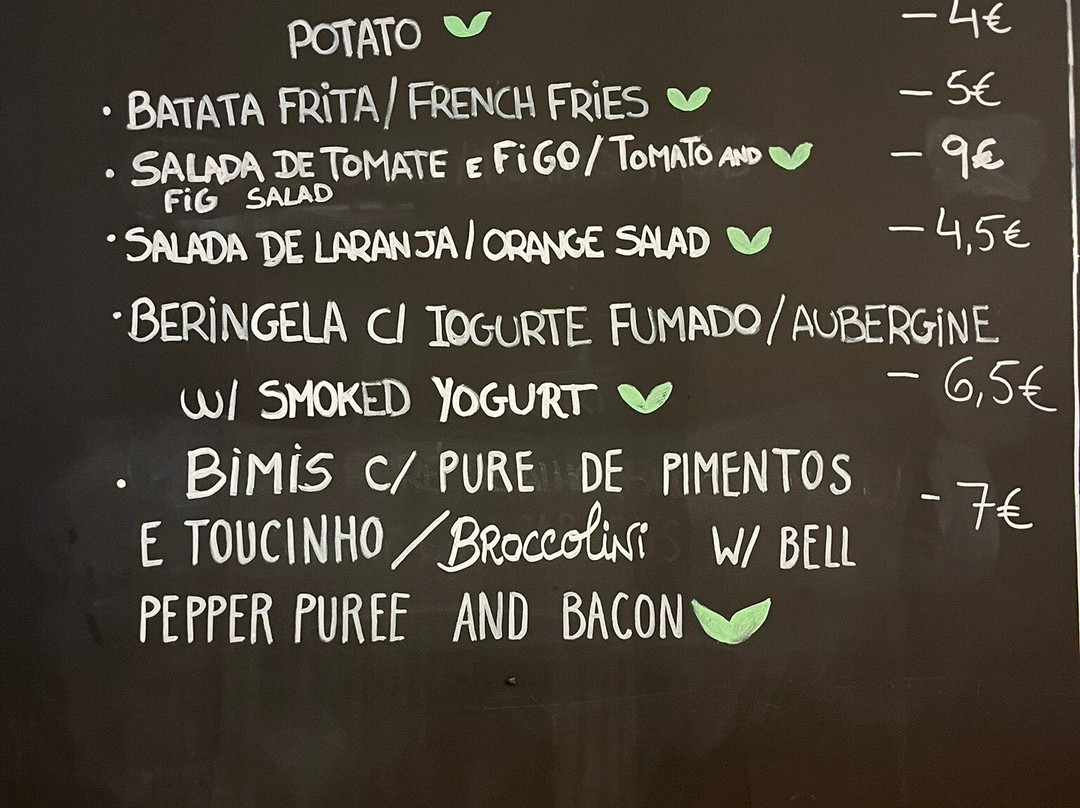 POTATO - 4€
· BATATA FRITA / FRENCH FRIES - 5€
· SALADA DE TOMATE E FIGO / TOMATO AND - 9€
FIG SALAD
· SALADA DE LARANJA / ORANGE SALAD - 4,5€
· BERINGELA C/ IOGURTE FUMADO / AUBERGINE
W/ SMOKED YOGURT - 6,5€
· BIMIS C/ PURE DE PIMENTOS - 7€
E TOUCINHO / BROCCOLINI W/ BELL
PEPPER PUREE AND BACON